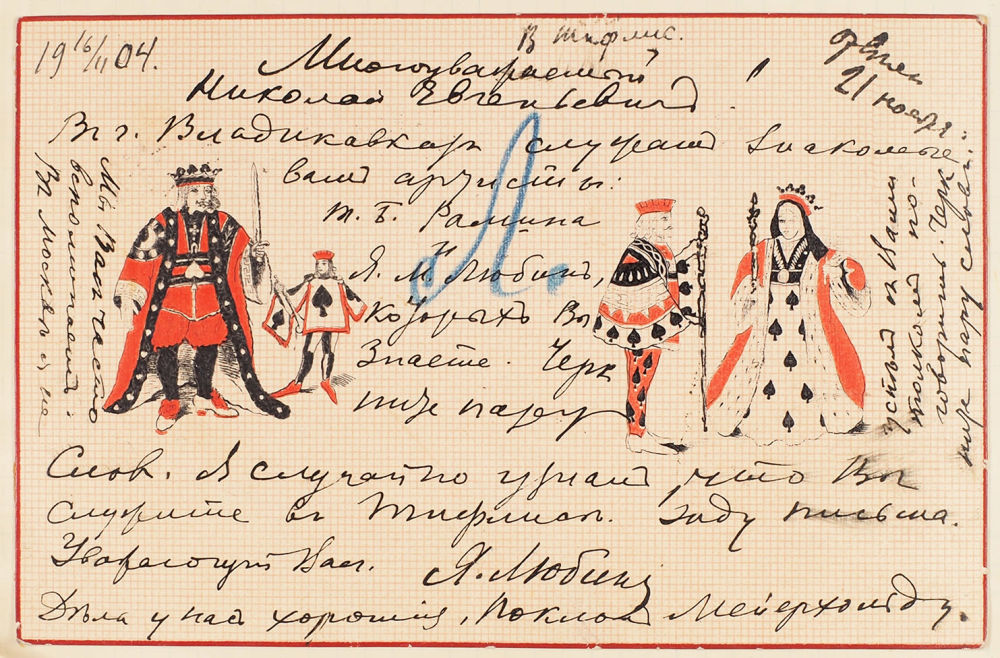 19 16/11 04.
В Тифлис.
21 ноября
Многоуважаемый
Николай Евгеньевич!
В г. Владикавказѣ служатъ знакомые
вамъ артисты:
Т. Б. Рамина
и
Я. М. Любинъ,
которыхъ Вы
знаете. Черк
ните пару
Слов. Я случайно узналъ, что Вы
служите въ Тифлисѣ. Жду письма.
Уважающій Васъ. Я. Любинъ
Дѣла у насъ хорошія, поклонъ Мейерхольду.
Мы Васъ часто
вспоминаемъ.
Въ Москвѣ
съ Вами
толкомъ по-
говорить. Черк
ните пару словъ.
Л.